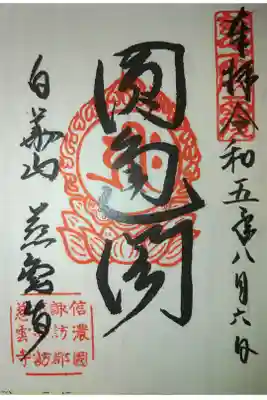 奉拝 令和五年八月六日
圓通閣
白華山 慈雲寺
信濃國
諏訪郡
慈雲寺